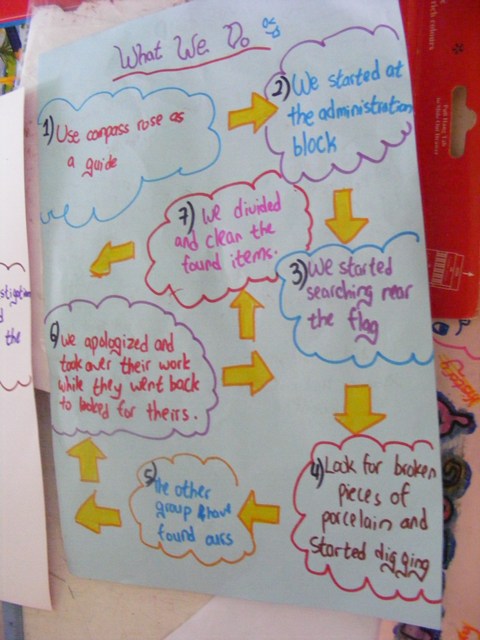 What We Do
1) Use compass rose as
a guide
2) We started at
the administration
block
3) We started
searching near
the flag
4) Look for broken
pieces of
porcelain and
started digging
5) The other
group have
found ours
6) We apologized and
took over their work
while they went back
to looked for theirs.
7) We divided
and clean the
found items.
stigation
the
rich colours